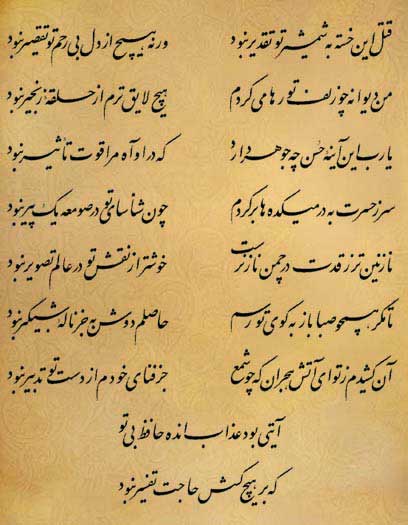 قتل این خسته به شمشیر تو تقدیر نبود ورنه هیچ از دل بی رحم تو تقصیر نبود
من دیوانه چو زلف تو رها می کردم هیچ لایق ترم از حلقه زنجیر نبود
یا رب این آینه حسن چه جوهر دارد که در او آه مرا قوت تأثیر نبود
سر ز حسرت به در میکده ها بر کردم چون شناسای تو در صومعه یک پیر نبود
نازنین تر ز قدت در چمن ناز نرست خوشتر از نقش تو در عالم تصویر نبود
تا مگر همچو صبا باز به کوی تو رسم حاصلم دوش به جز ناله شبگیر نبود
آن کشیدم ز تو ای آتش هجران که چو شمع جز فنای خودم از دست تو تدبیر نبود
آیتی بود عذاب انده حافظ بی تو
که بر هیچ کسش حاجت تفسیر نبود